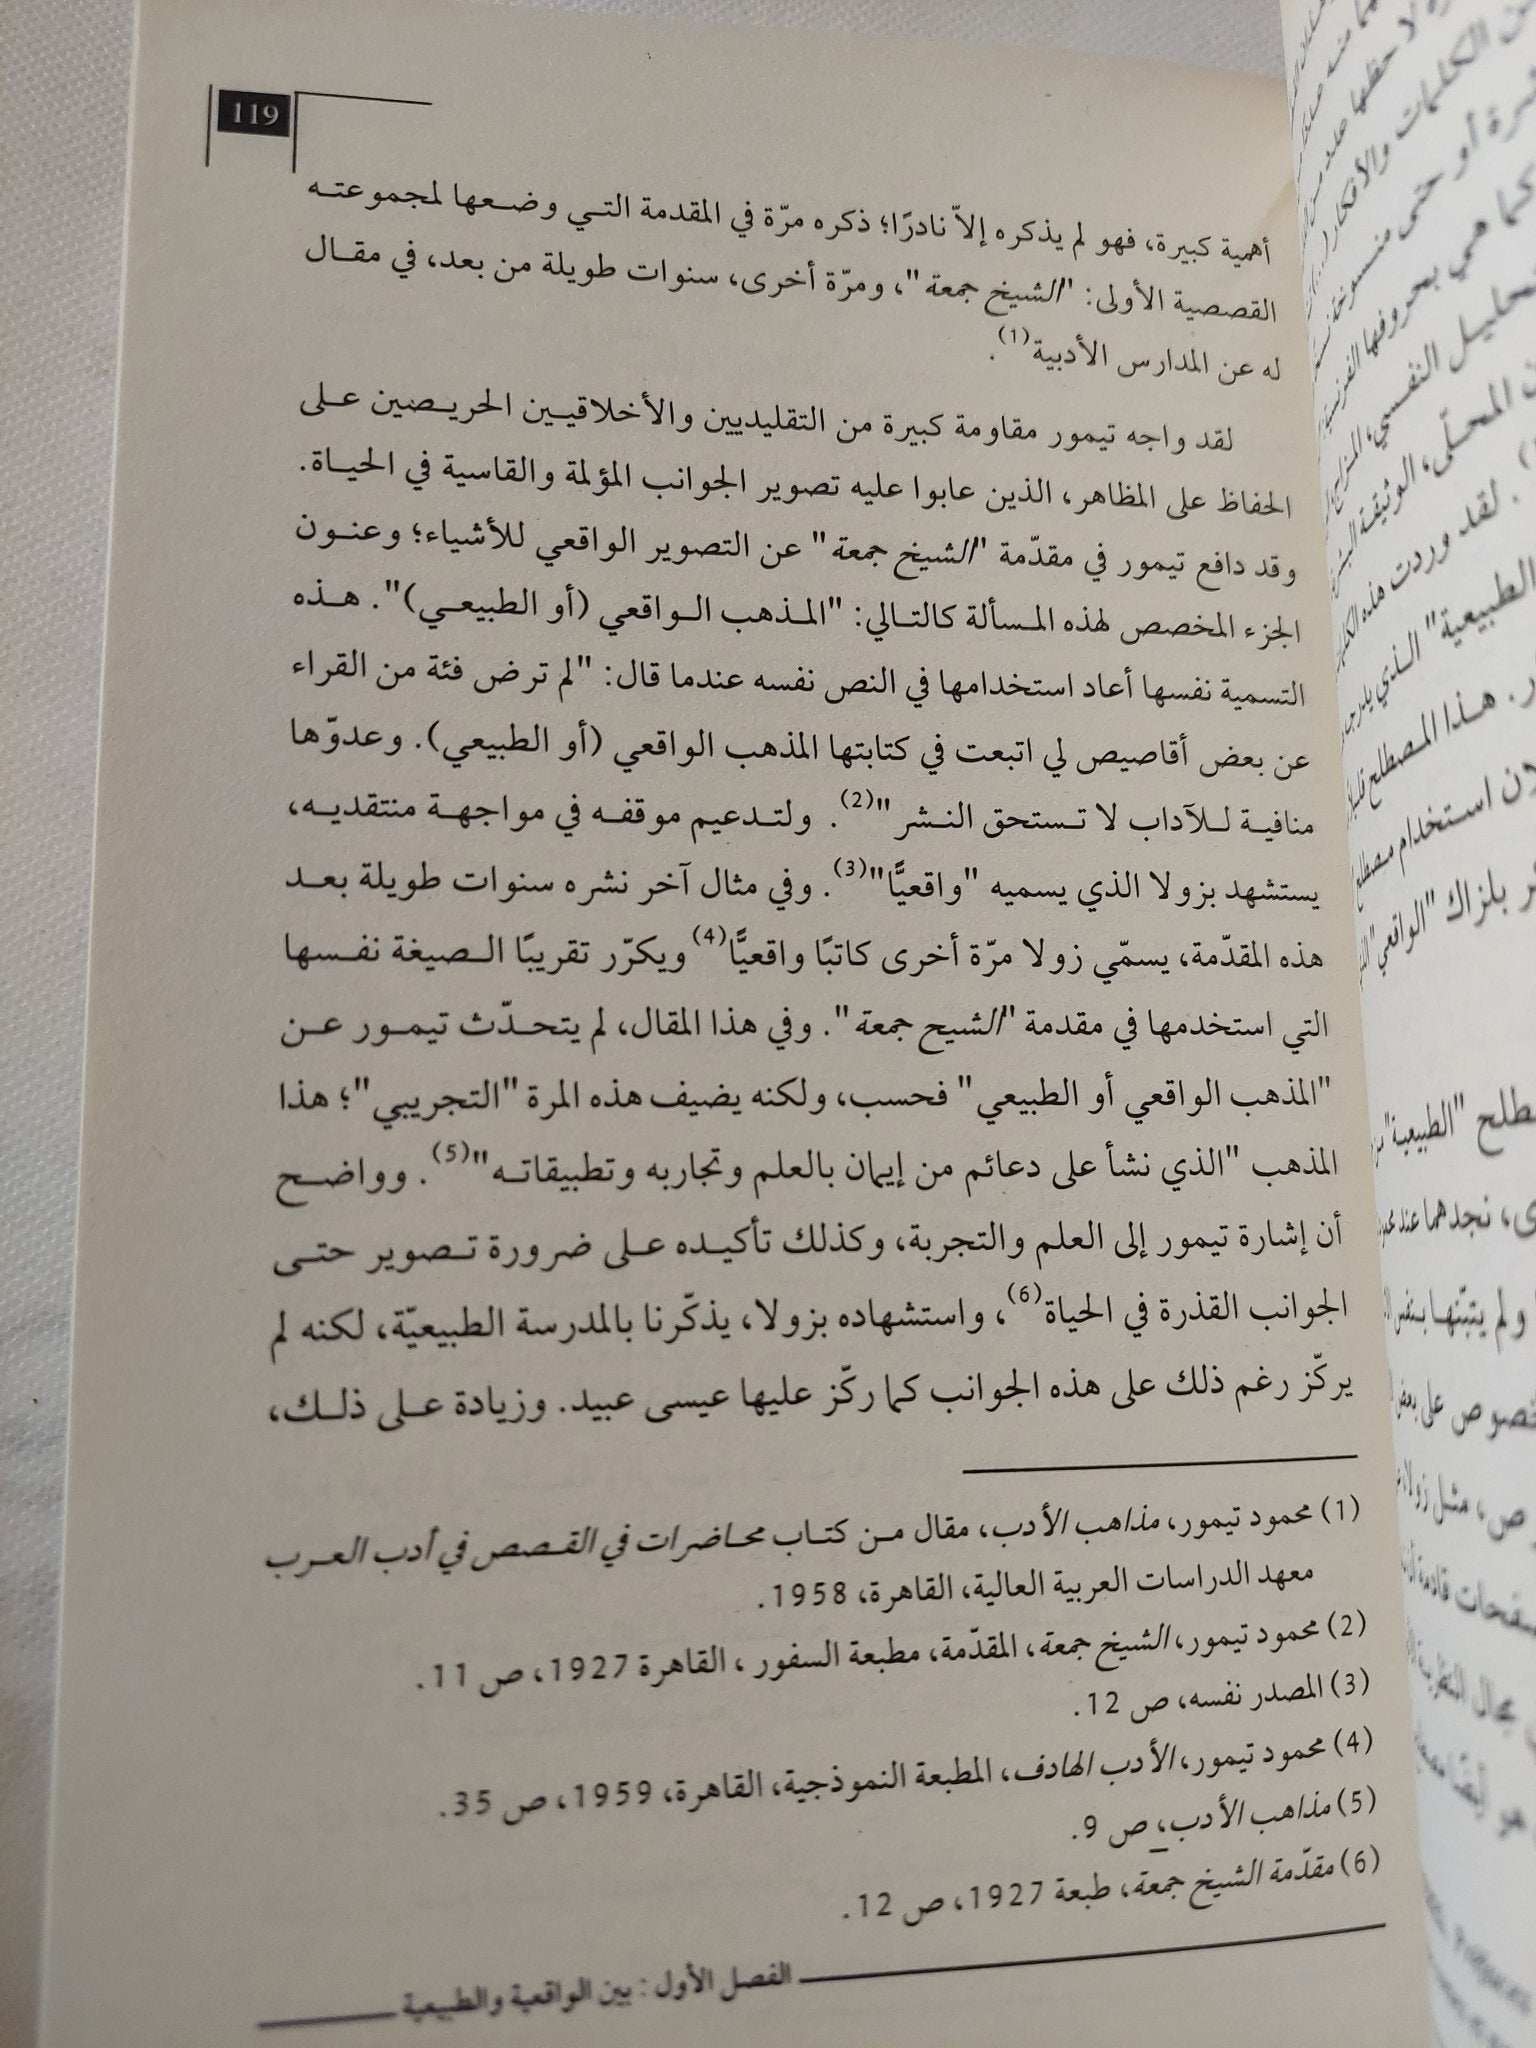 119
أهمية كبيرة، فهو لم يذكره إلاّ نادرًا؛ ذكره مرّة في المقدمة التي وضعها لمجموعته
القصصية الأولى: "الشيخ جمعة"، ومرّة أخرى، سنوات طويلة من بعد، في مقال
له عن المدارس الأدبية(1).
لقد واجه تيمور مقاومة كبيرة من التقليديين والأخلاقيين الحريصين على
الحفاظ على المظاهر، الذين عابوا عليه تصوير الجوانب المؤلمة والقاسية في الحياة.
وقد دافع تيمور في مقدّمة "الشيخ جمعة" عن التصوير الواقعي للأشياء؛ وعنون
الجزء المخصص لهذه المسألة كالتالي: "المذهب الواقعي (أو الطبيعي)". هذه
التسمية نفسها أعاد استخدامها في النص نفسه عندما قال: "لم ترض فئة من القراء
عن بعض أقاصيص لي اتبعت في كتابتها المذهب الواقعي (أو الطبيعي). وعدوّها
منافية للآداب لا تستحق النشر"(2). ولتدعيم موقفه في مواجهة منتقديه،
يستشهد بزولا الذي يسميه "واقعيًّا"(3). وفي مثال آخر نشره سنوات طويلة بعد
هذه المقدّمة، يسمّي زولا مرّة أخرى كاتبًا واقعيًّا(4) ويكرّر تقريبًا الصيغة نفسها
التي استخدمها في مقدمة "الشيح جمعة". وفي هذا المقال، لم يتحدّث تيمور عن
"المذهب الواقعي أو الطبيعي" فحسب، ولكنه يضيف هذه المرة "التجريبي"؛ هذا
المذهب "الذي نشأ على دعائم من إيمان بالعلم وتجاربه وتطبيقاته"(5). وواضح
أن إشارة تيمور إلى العلم والتجربة، وكذلك تأكيده على ضرورة تصوير حتى
الجوانب القذرة في الحياة(6)، واستشهاده بزولا، يذكّرنا بالمدرسة الطبيعيّة، لكنه لم
يركّز رغم ذلك على هذه الجوانب كما ركّز عليها عيسى عبيد. وزيادة على ذلك،
(1) محمود تيمور، مذاهب الأدب، مقال من كتاب محاضرات في القصص في أدب العرب
معهد الدراسات العربية العالية، القاهرة، 1958.
(2) محمود تيمور، الشيخ جمعة، المقدّمة، مطبعة السفور، القاهرة 1927، ص 11.
(3) المصدر نفسه، ص 12.
(4) محمود تيمور، الأدب الهادف، المطبعة النموذجية، القاهرة، 1959، ص 35.
(5) مذاهب الأدب، ص 9.
(6) مقدّمة الشيخ جمعة، طبعة 1927، ص 12.
الفصل الأول: بين الواقعية والطبيعية